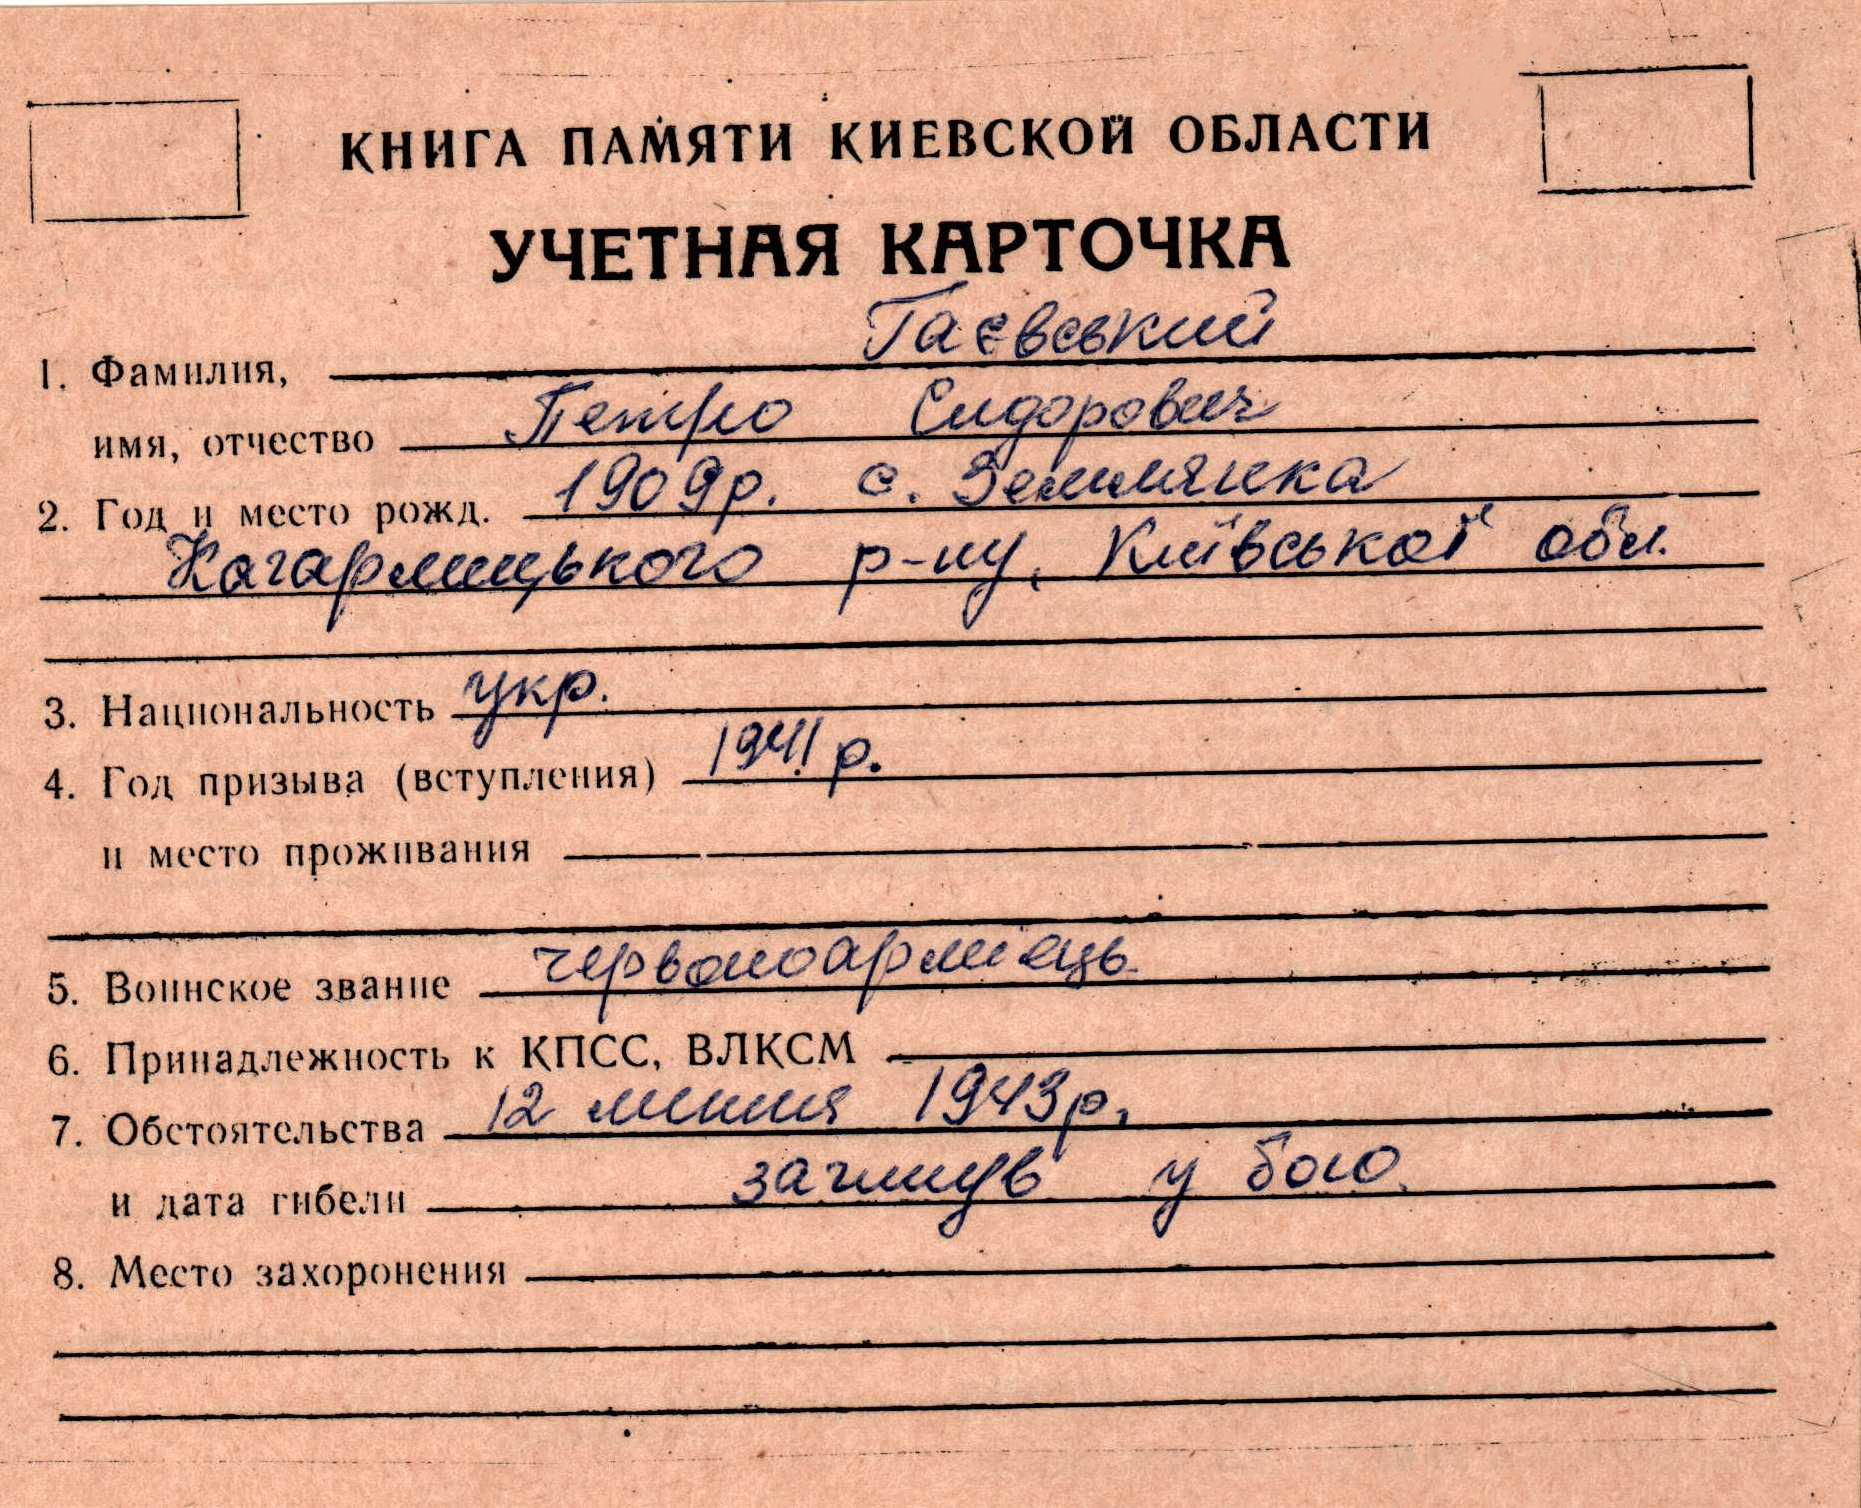 КНИГА ПАМЯТИ КИЕВСКОЙ ОБЛАСТИ
УЧЕТНАЯ КАРТОЧКА
1. Фамилия, Гаєвський
имя, отчество Петро Сидорович
2. Год и место рожд. 1909р. с. Землянка
Кагарлицького р-ну, Київської обл.
3. Национальность укр.
4. Год призыва (вступления) 1941 р.
и место проживания
5. Воинское звание червоноармієць
6. Принадлежность к КПСС, ВЛКСМ
7. Обстоятельства 12 липня 1943р.
и дата гибели загинув у бою.
8. Место захоронения